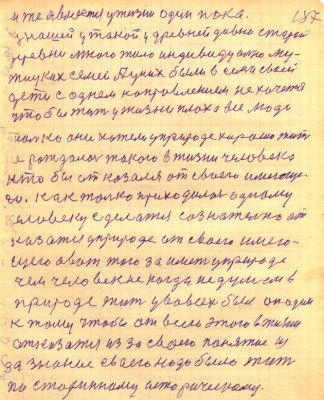 187
и же является у жизни один пока.
у нашей у такой у древней давно старой
деревни много жило индивидуално му-
жицких семей. А у них были в семье своей
дети с одном направлением не хочется
что бы жит у жизни плоха все люди
только они хотели у природе хорошо жит
е рождалос такого в жизни человека
кто бы отказался от своего имеюще-
го. как только приходилос одному
человеку сделатся сознателно от
казатся у природе от своего имею-
щего а вот того заимет у природе
чем человек некогда не думал в
природе жит у во всех был
к тому чтобы от всего этого в жизни
отказатся из за своего понятие и
за знание своего надо было жит
по старинному историческому.